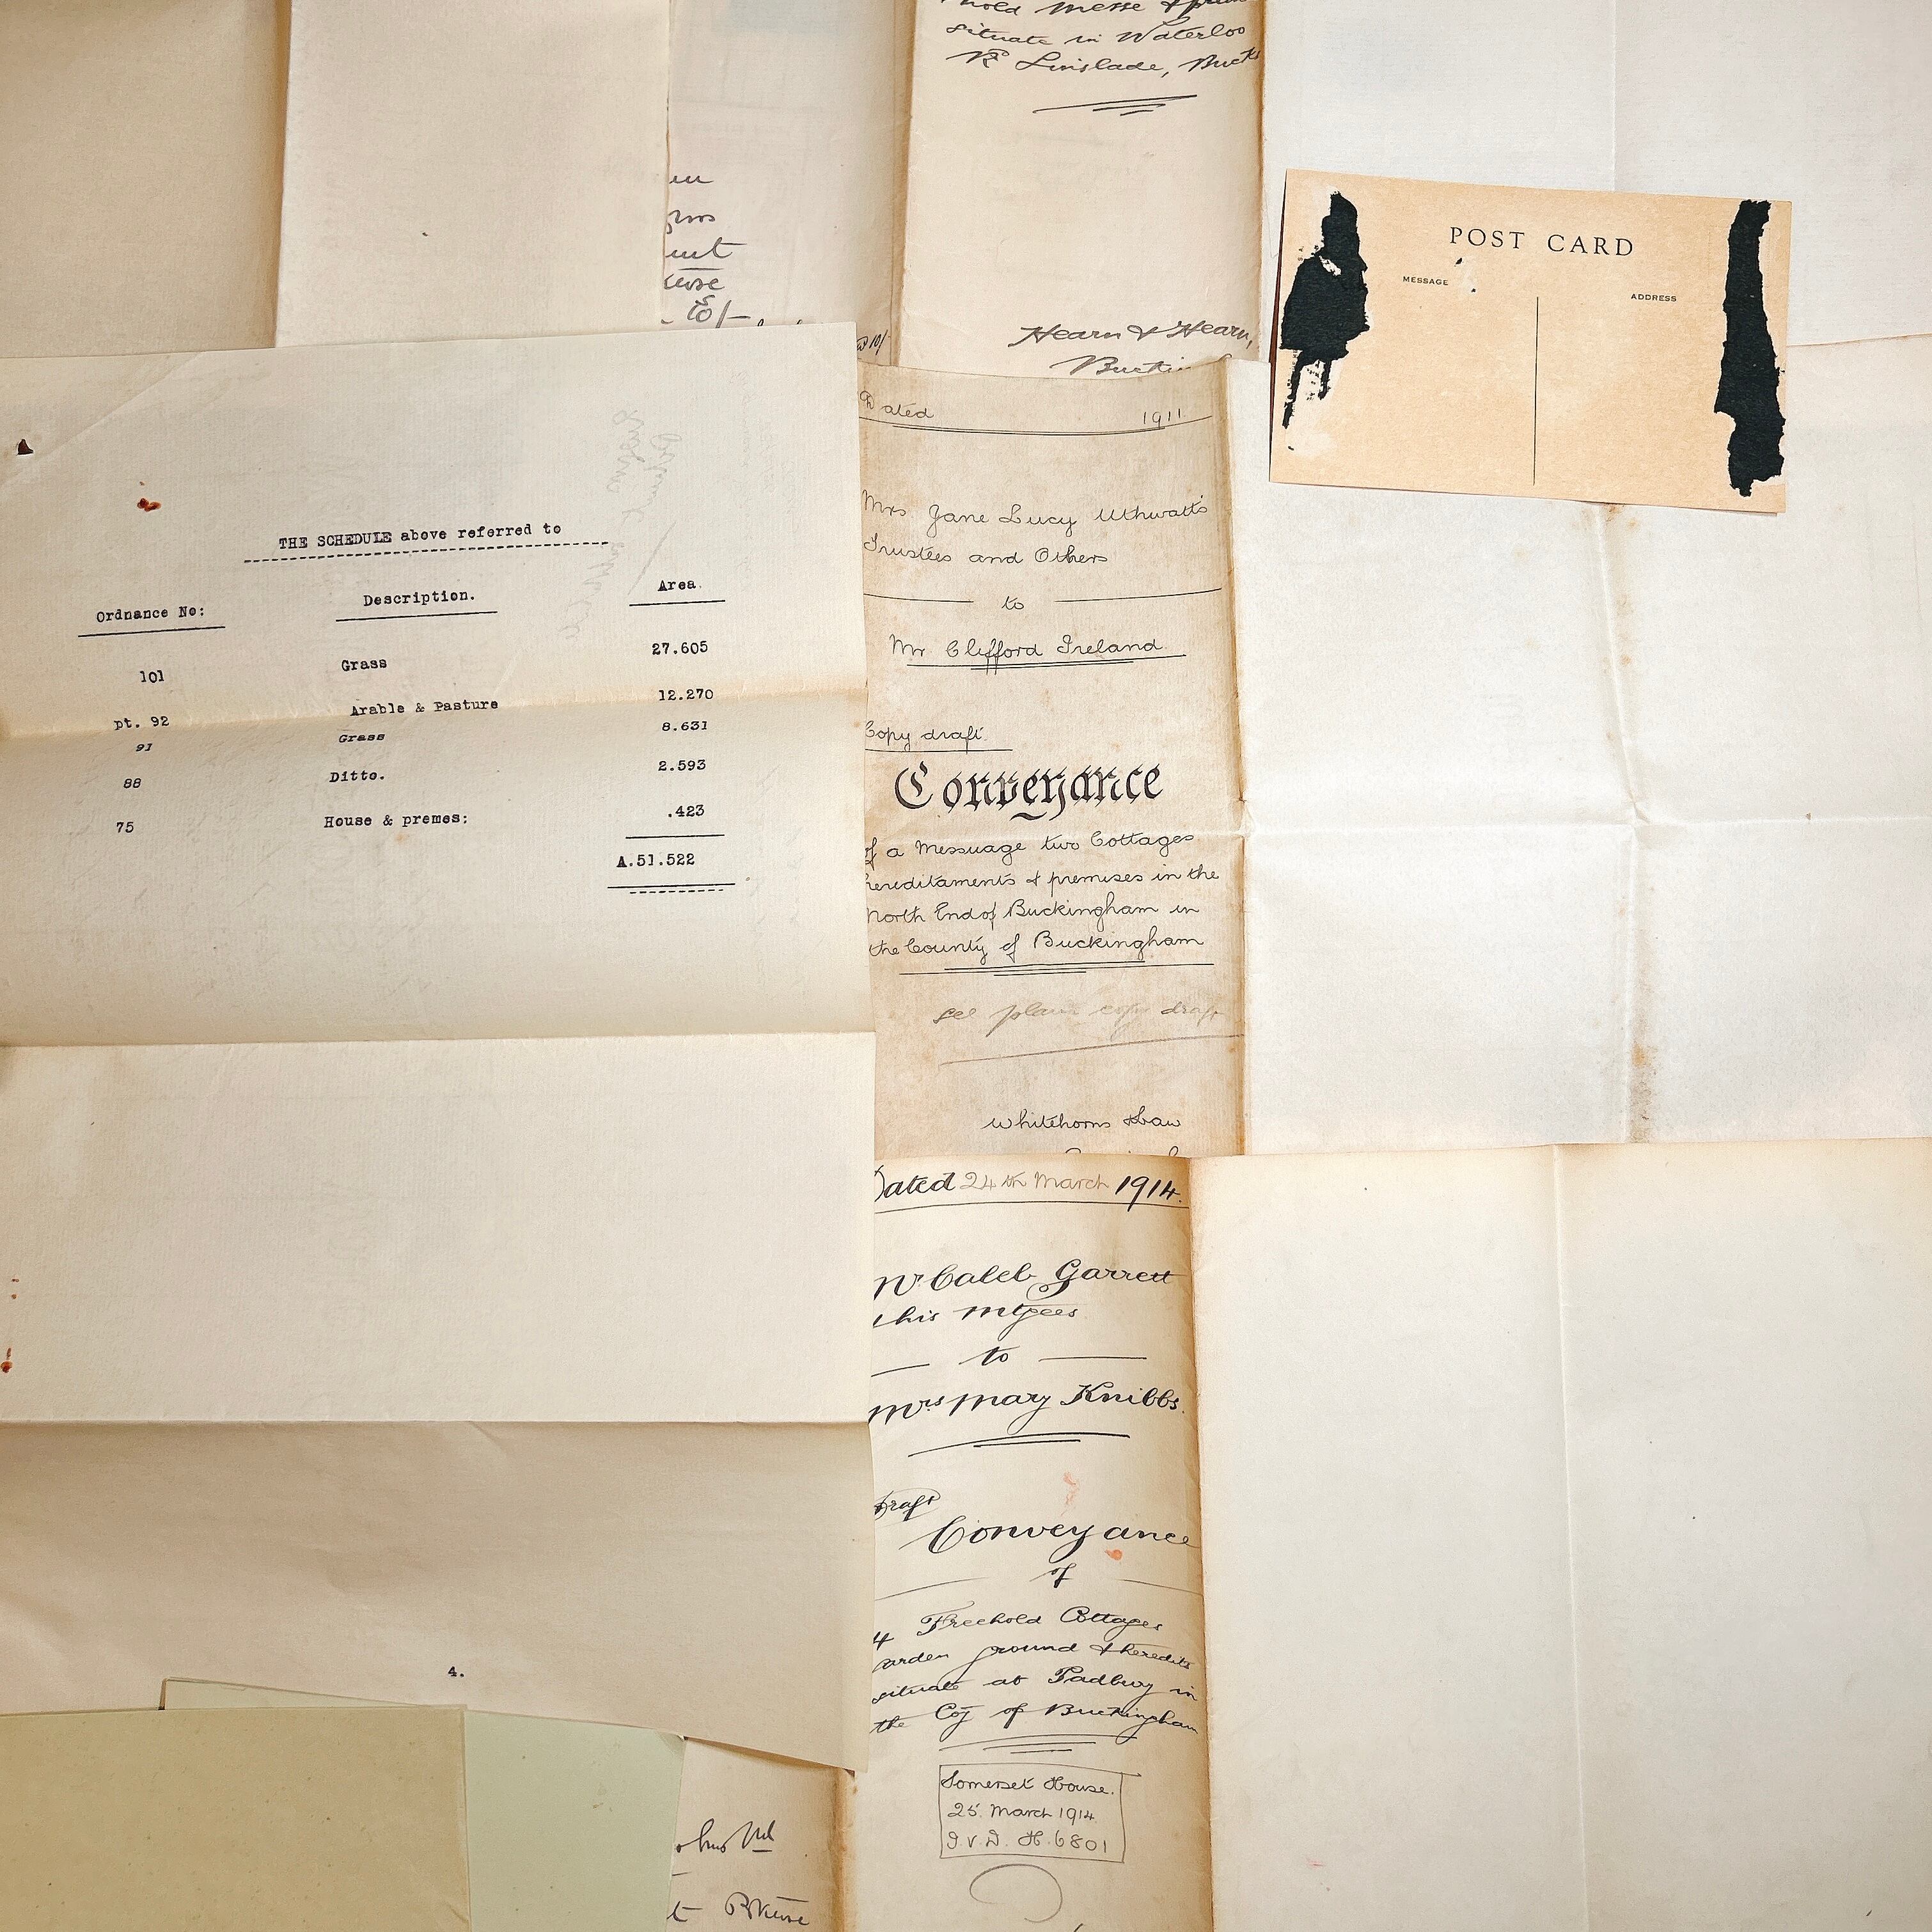 situate in Waterloo
Rd Linslade, Bucks
Hearn & Hearn,
POST CARD
MESSAGE
ADDRESS
THE SCHEDULE above referred to
Ordnance No: Description. Area.
101 Grass 27.605
pt. 92 Arable & Pasture 12.270
91 Grass 8.631
88 Ditto. 2.593
75 House & premes: .423
A.51.522
4.
Dated 1911
Mrs Jane Lucy Uthwatt's
Trustees and Others
to
Mr Clifford Ireland.
Copy draft
Conveyance
of a Messuage two Cottages
hereditaments & premises in the
North End of Buckingham in
the County of Buckingham
see plain copy draft
Whitehorns & Law
Dated 24th March 1914.
Mr Caleb Garrett
& his Mtgees
to
Mrs Mary Knibbs.
Draft
Conveyance
of
4 Freehold Cottages
garden ground & heredits
situate at Padbury in
the Coy of Buckingham
Somerset House.
25 March 1914
I.V.D. H.6801